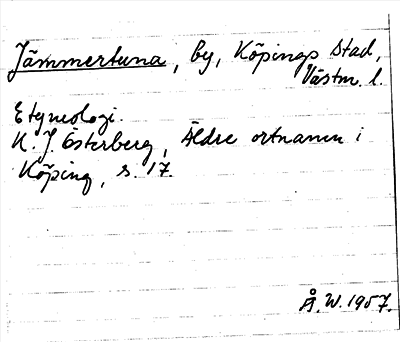 Jämmertuna, by, Köpings stad,
Västm. l.
Etymologi.
K. J. Österberg, Äldre ortnamn i
Köping, s. 17.
Å. W. 1957.